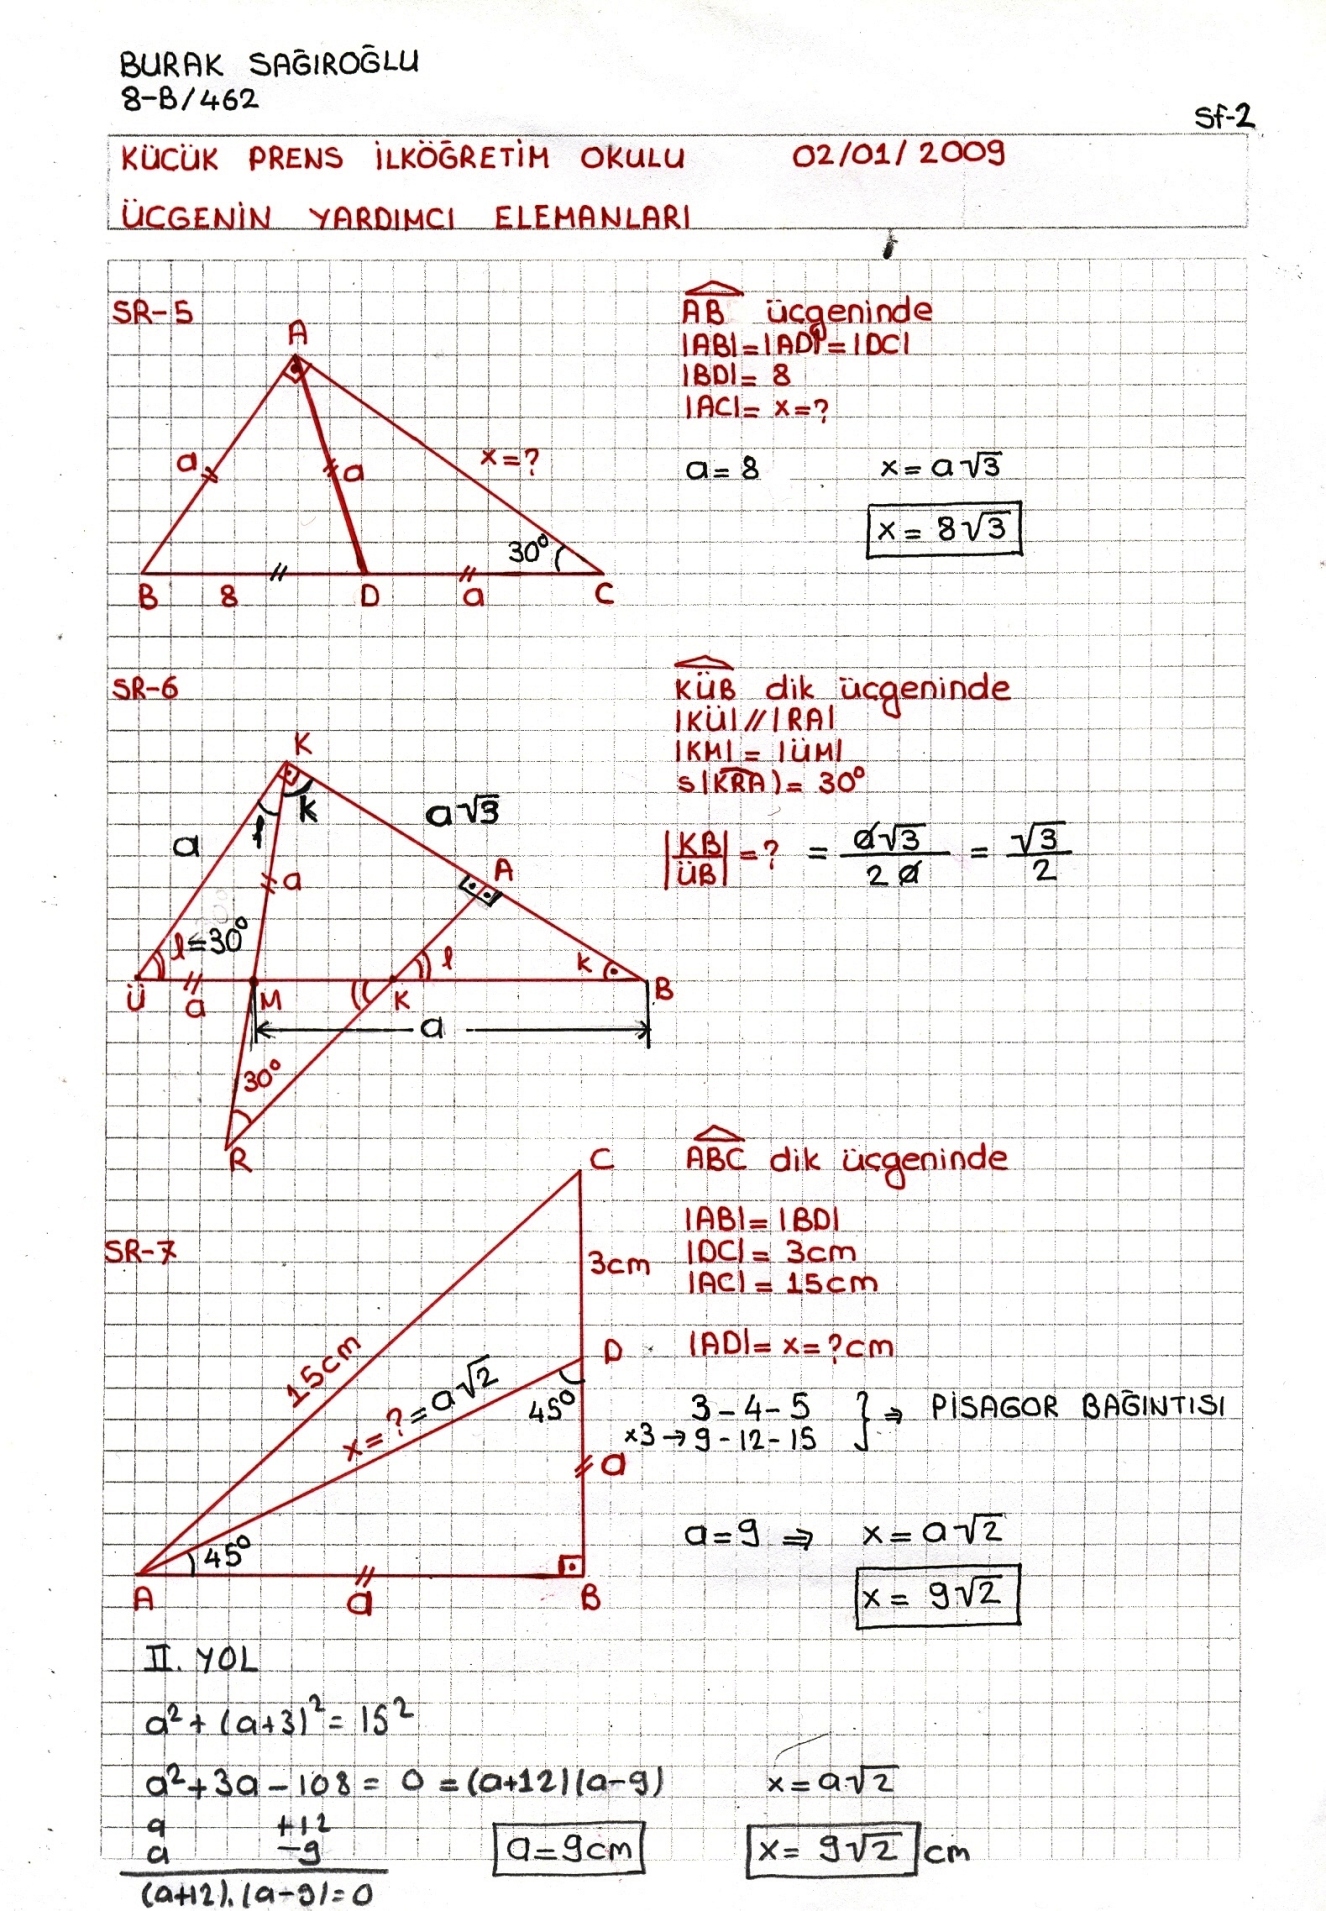 BURAK SAĞIROĞLU
8-B/462
Sf-2
KÜÇÜK PRENS İLKÖĞRETİM OKULU 02/01/2009
ÜCGENİN YARDIMCI ELEMANLARI
SR-5
A
a
a
x=?
30°
B 8 D a C
AB ücgeninde
|AB|=|AD|=|DC|
|BD|= 8
|AC|= x=?
a=8 x=a√3
x= 8√3
SR-6
K
k
l
a
a√3
a
A
l=30°
l
k
Ü a M K B
a
30°
R
KÜB dik üçgeninde
|KÜ|//|RA|
|KM|=|ÜM|
s(KRA)= 30°
|KB/ÜB|=? = a√3/2a = √3/2
SR-7
C
3cm
15cm
D
x=?=a√2
45°
a
45°
A a B
ABC dik üçgeninde
|AB|=|BD|
|DC|= 3cm
|AC|= 15cm
|AD|= x=?cm
3-4-5
x3→9-12-15 } ⇒ PİSAGOR BAĞINTISI
a=9 ⇒ x=a√2
x= 9√2
II. YOL
a²+(a+3)²=15²
a²+3a-108= 0 =(a+12)(a-9) x=a√2
a +12
a -9
a=9cm x= 9√2 cm
(a+12).(a-9)=0